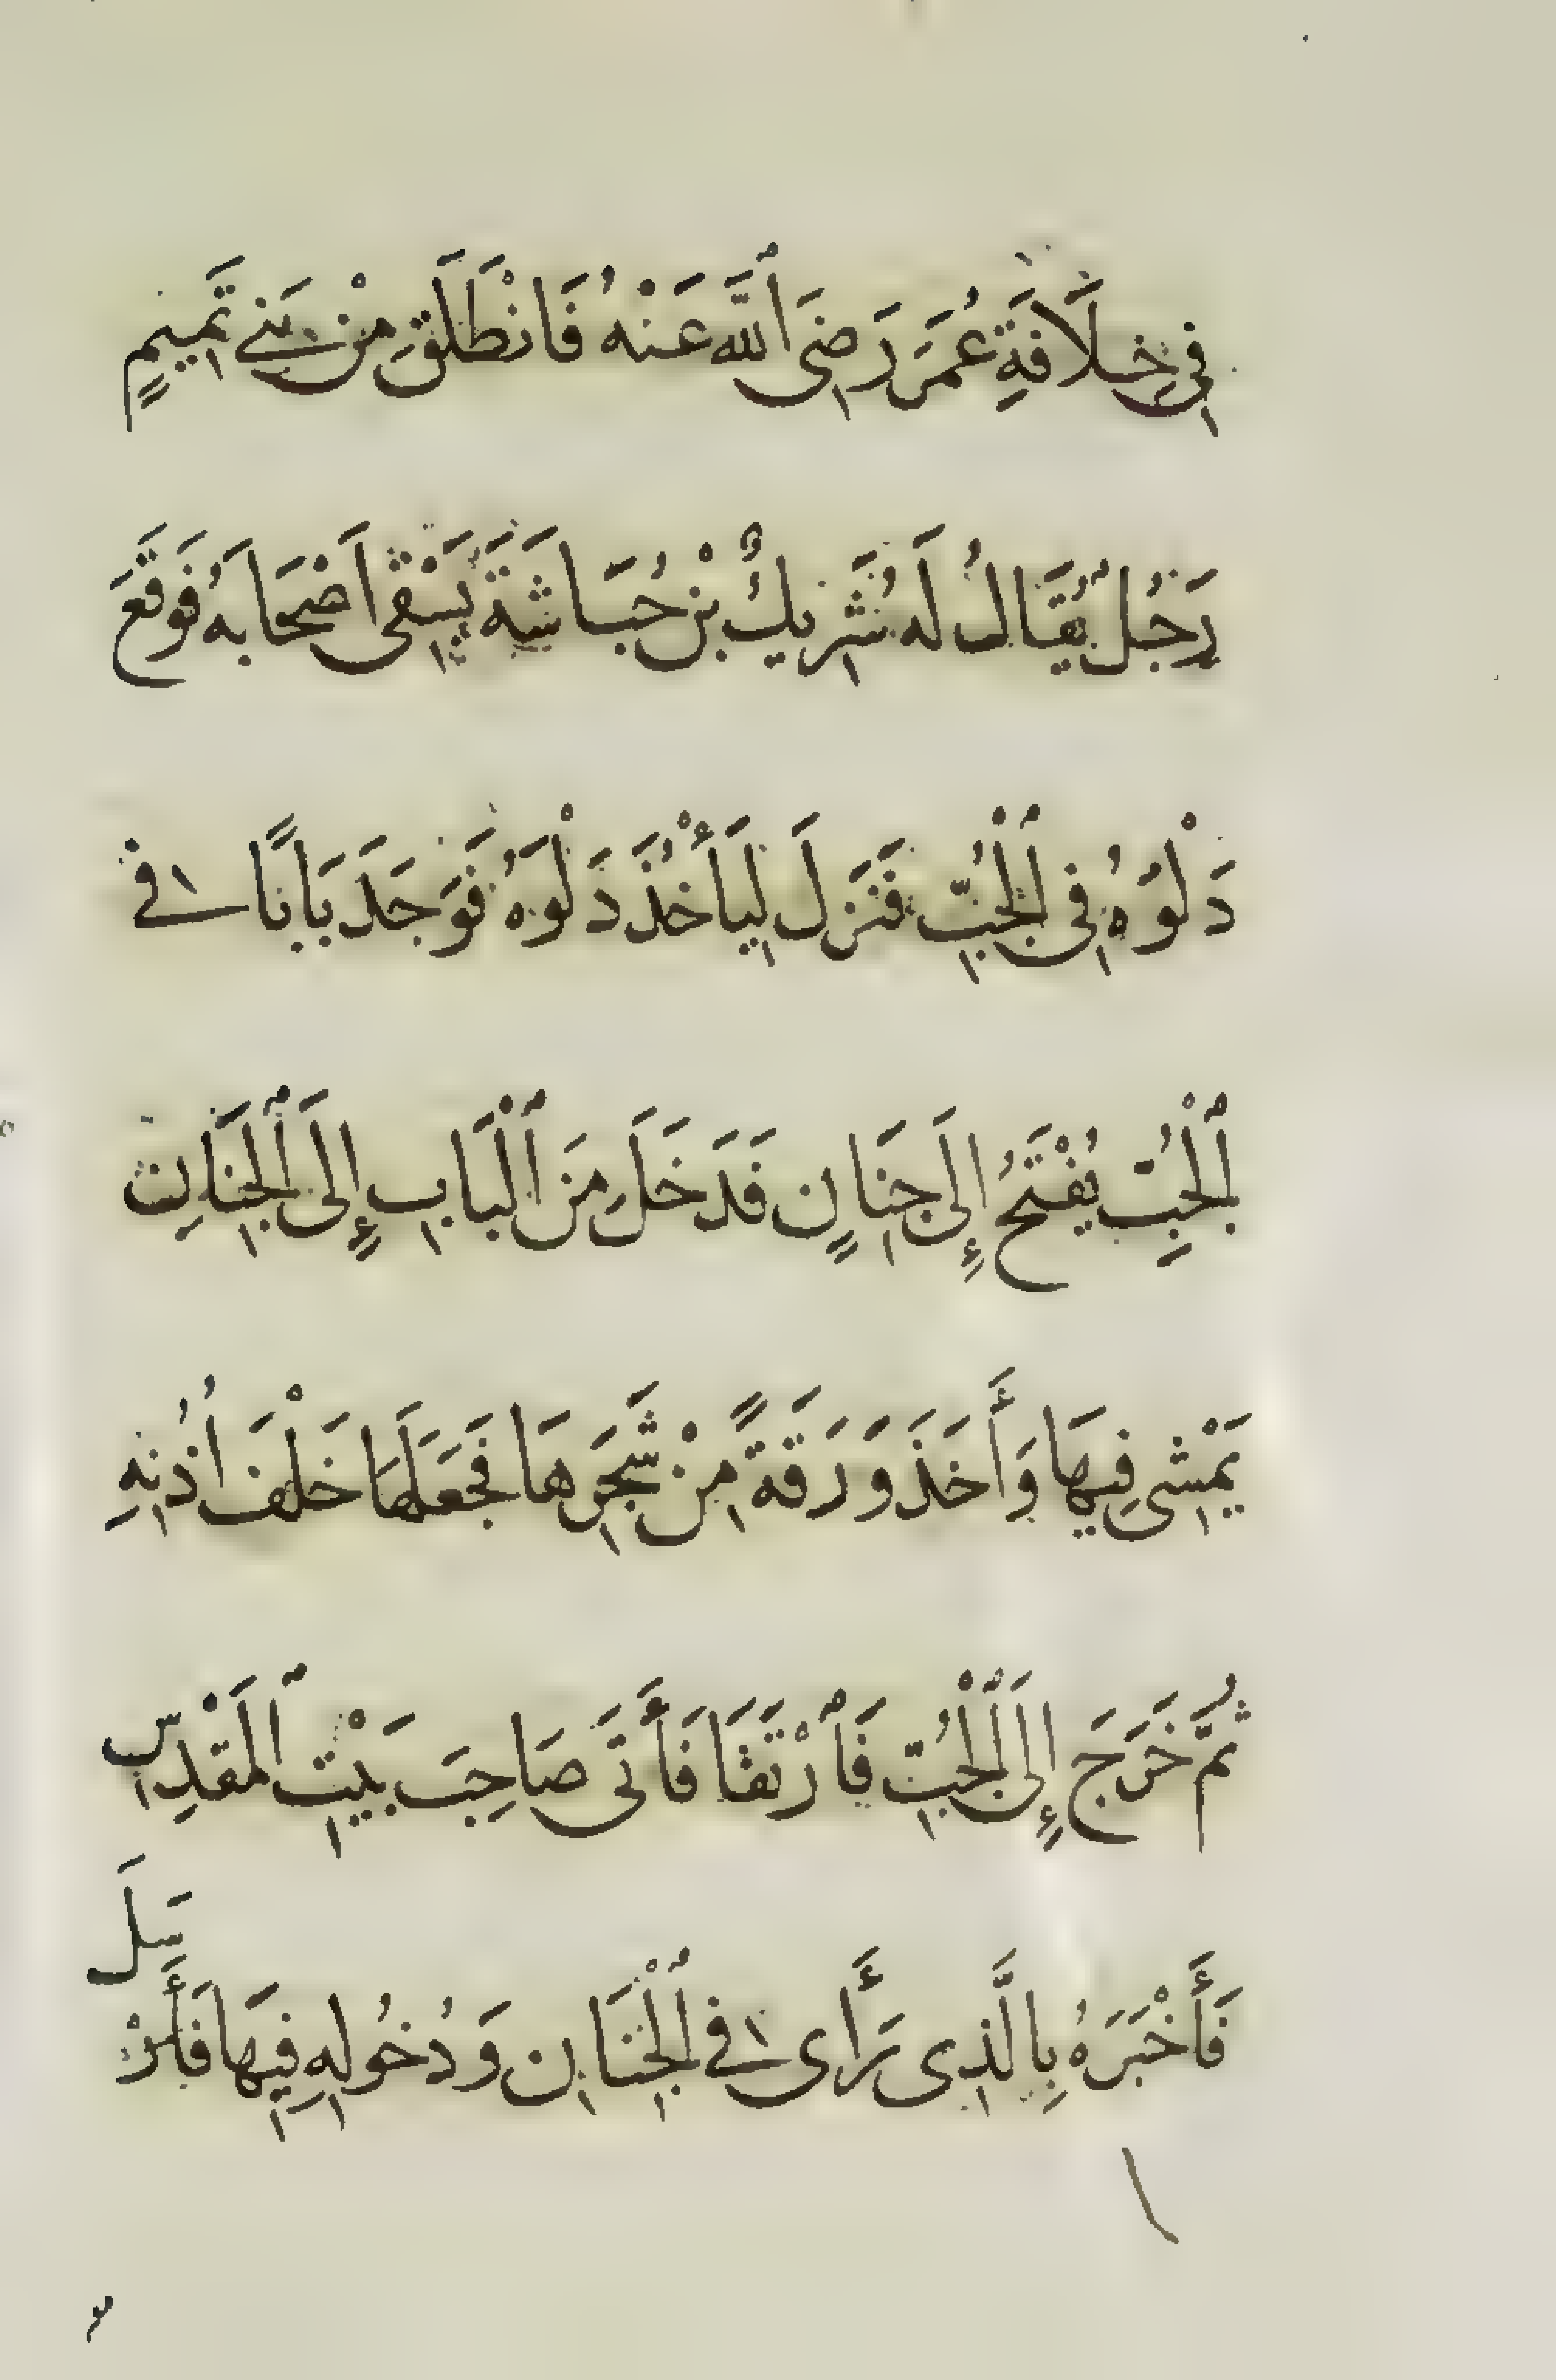 فِي خِلَافَةِ عُمَرَ رَضِيَ ٱللَّهُ عَنْهُ فَانْطَلَقَ مِنْ بَنِي تَمِيمٍ
رَجُلٌ يُقَالُ لَهُ شَرِيكُ بْنُ حُبَاشَةَ يَسْقِي اَصْحَابَهُ فَوَقَعَ
دَلْوُهُ فِي ٱلْجُبِّ فَنَزَلَ لِيَأْخُذَ دَلْوَهُ فَوَجَدَ بَابًا فِي
ٱلْجُبِّ يُفْتَحُ إِلَى جِنَانٍ فَدَخَلَ مِنَ ٱلْبَابِ إِلَى ٱلْجِنَانِ
يَمْشِي فِيهَا وَأَخَذَ وَرَقَةً مِنْ شَجَرِهَا فَجَعَلَهَا خَلْفَ اُذُنِهِ
ثُمَّ خَرَجَ إِلَى ٱلْجُبِّ فَٱرْتَقَا فَأَتَى صَاحِبَ بَيْتِ ٱلْمَقْدِسِ
فَأَخْبَرَهُ بِالَّذِي رَأَى فِي ٱلْجِنَانِ وَدُخُولِهِ فِيهَا فَأَرْسَلَ